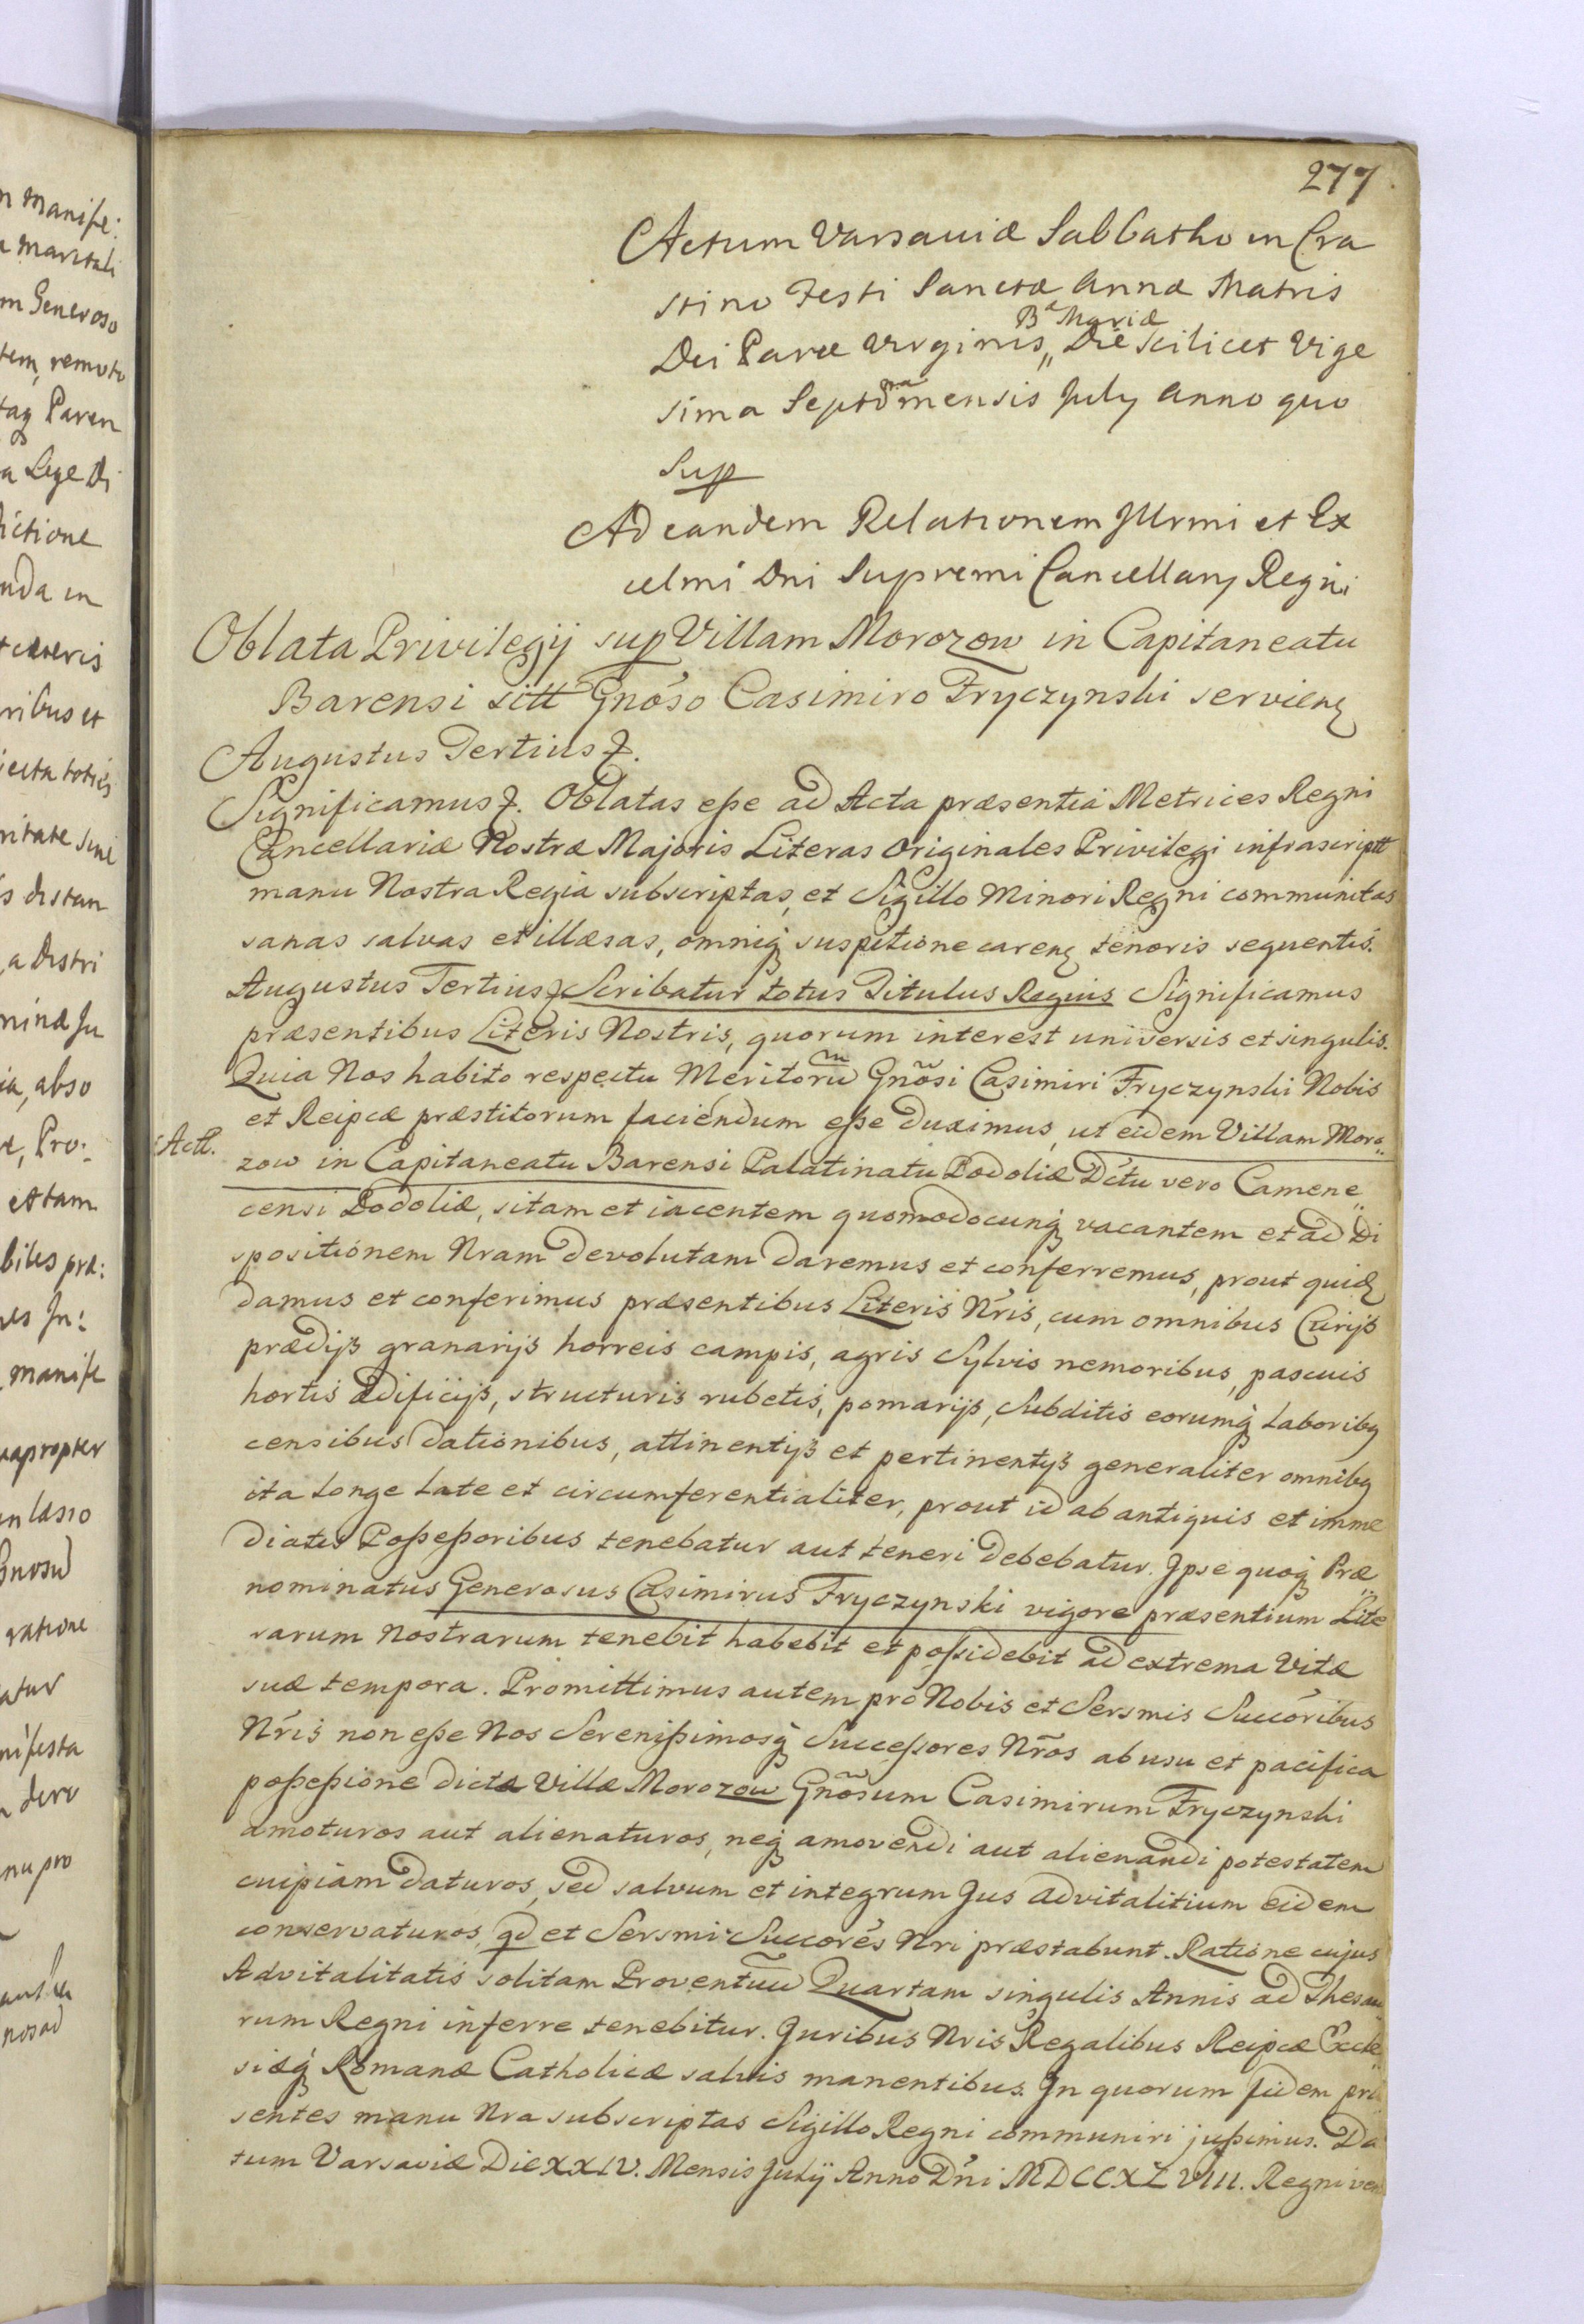 277
Actum Varsaviæ Sabbatho in Cra
stino Festi Sanctæ Annæ Matris
Dei Paræ Virginis „ Bæ Mariæ Die scilicet Vige
sima Septima mensis July Anno quo
Sup
Ad eandem Relationem Jllrmi et Ex
celmi Dni Supremi Cancellarij Regni
Oblata Privilegij sup Villam Morozow in Capitaneatu
Barensi sitt Gnoso Casimiro Fryczynski servienz
Augustus Tertius &.
Significamus &. Oblatas eße ad Acta præsentia Metrices Regni
Cancellariæ Nostræ Majoris Literas Originales Privilegi infrascriptt
manu Nostra Regia subscriptas, et Sigillo Minori Regni communitas
sanas salvas et illæsas, omniq suspitione carenz tenoris sequentis.
Augustus Tertius & Scribatur totus Titulus Regius Significamus
præsentibus Literis Nostris, quorum interest universis et singulis.
Quia Nos habito respectu Meritorũ Gnõsi Casimiri Fryczynski Nobis
et Reipcæ præstitorum faciendum eße duximus, ut eidem Villam Moro„
Actl.
zow in Capitaneatu Barensi Palatinatu Podoliæ Dctu vero Camene„
censi Podoliæ, sitam et iacentem quomodocunq vacantem et ad Di
spositionem Nram devolutam daremus et conferremus, prout quidz
damus et conferimus præsentibus Literis Nris, cum omnibus Curijs
prædijs granarijs horreis campis, agris Sylvis nemoribus, pascuis
hortis ædificijs, structuris rubetis, pomarijs, Subditis eorumq Laboribq
censibus dationibus, attinentijs et pertinentijs generaliter omnibq
ita Longe Late et circumferentialiter, prout id ab antiquis et imme
diatis Poßeßoribus tenebatur aut teneri debebatur. Jpse quoq Præ„
nominatus Generosus Casimirus Fryczynski vigore præsentium Lite
rarum Nostrarum tenebit habebit et poßidebit ad extrema Vitæ
suæ tempora. Promittimus autem pro Nobis et Sersmis Succoribus
Nris non eße Nos Sereнißimosq Succeßores Nros ab usu et pacifica
poßeßione dictæ Villæ Morozow Gnõsum Casimirum Fryczynski
amoturos aut alienaturos, neq amovendi aut alienandi potestatem
cuipiam daturos, sed salvum et integrum Jus Advitalitium eidem
conservaturos, qd et Sersmi Succores Nri præstabunt. Ratione cujus
Advitalitatis solitam Proventuũ Quartam singulis Annis ad Thesau
rum Regni inferre tenebitur. Juribus Nris Regalibus Reipcæ Eccle„
siæq Romanæ Catholicæ salvis manentibus. Jn quorum fidem præ
sentes manu Nra subscriptas Sigillo Regni communiri jußimus. Da
tum Varsaviæ Die XXIV. Mensis Julij Anno Dni MDCCXLVIII. Regni vero